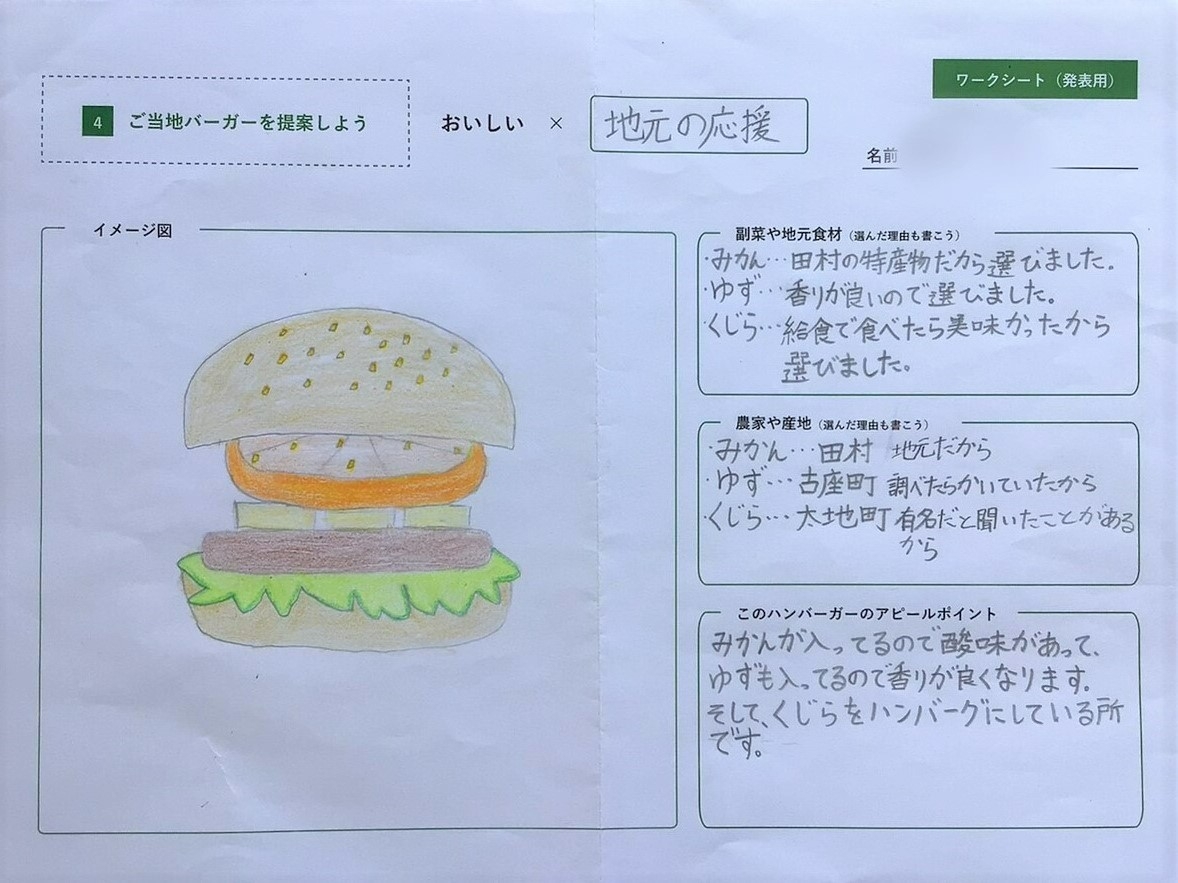 ワークシート（発表用）
4 ご当地バーガーを提案しよう
おいしい × 地元の応援
名前
イメージ図
副菜や地元食材（選んだ理由も書こう）
・みかん…田村の特産物だから選びました。
・ゆず…香りが良いので選びました。
くじら…給食で食べたら美味かったから
選びました。
農家や産地（選んだ理由も書こう）
・みかん…田村 地元だから
・ゆず…古座町 調べたらかいていたから
くじら…太地町 有名だと聞いたことがある
から
このハンバーガーのアピールポイント
みかんが入ってるので酸味があって、
ゆずも入ってるので香りが良くなります。
そして、くじらをハンバーグにしている所
です。